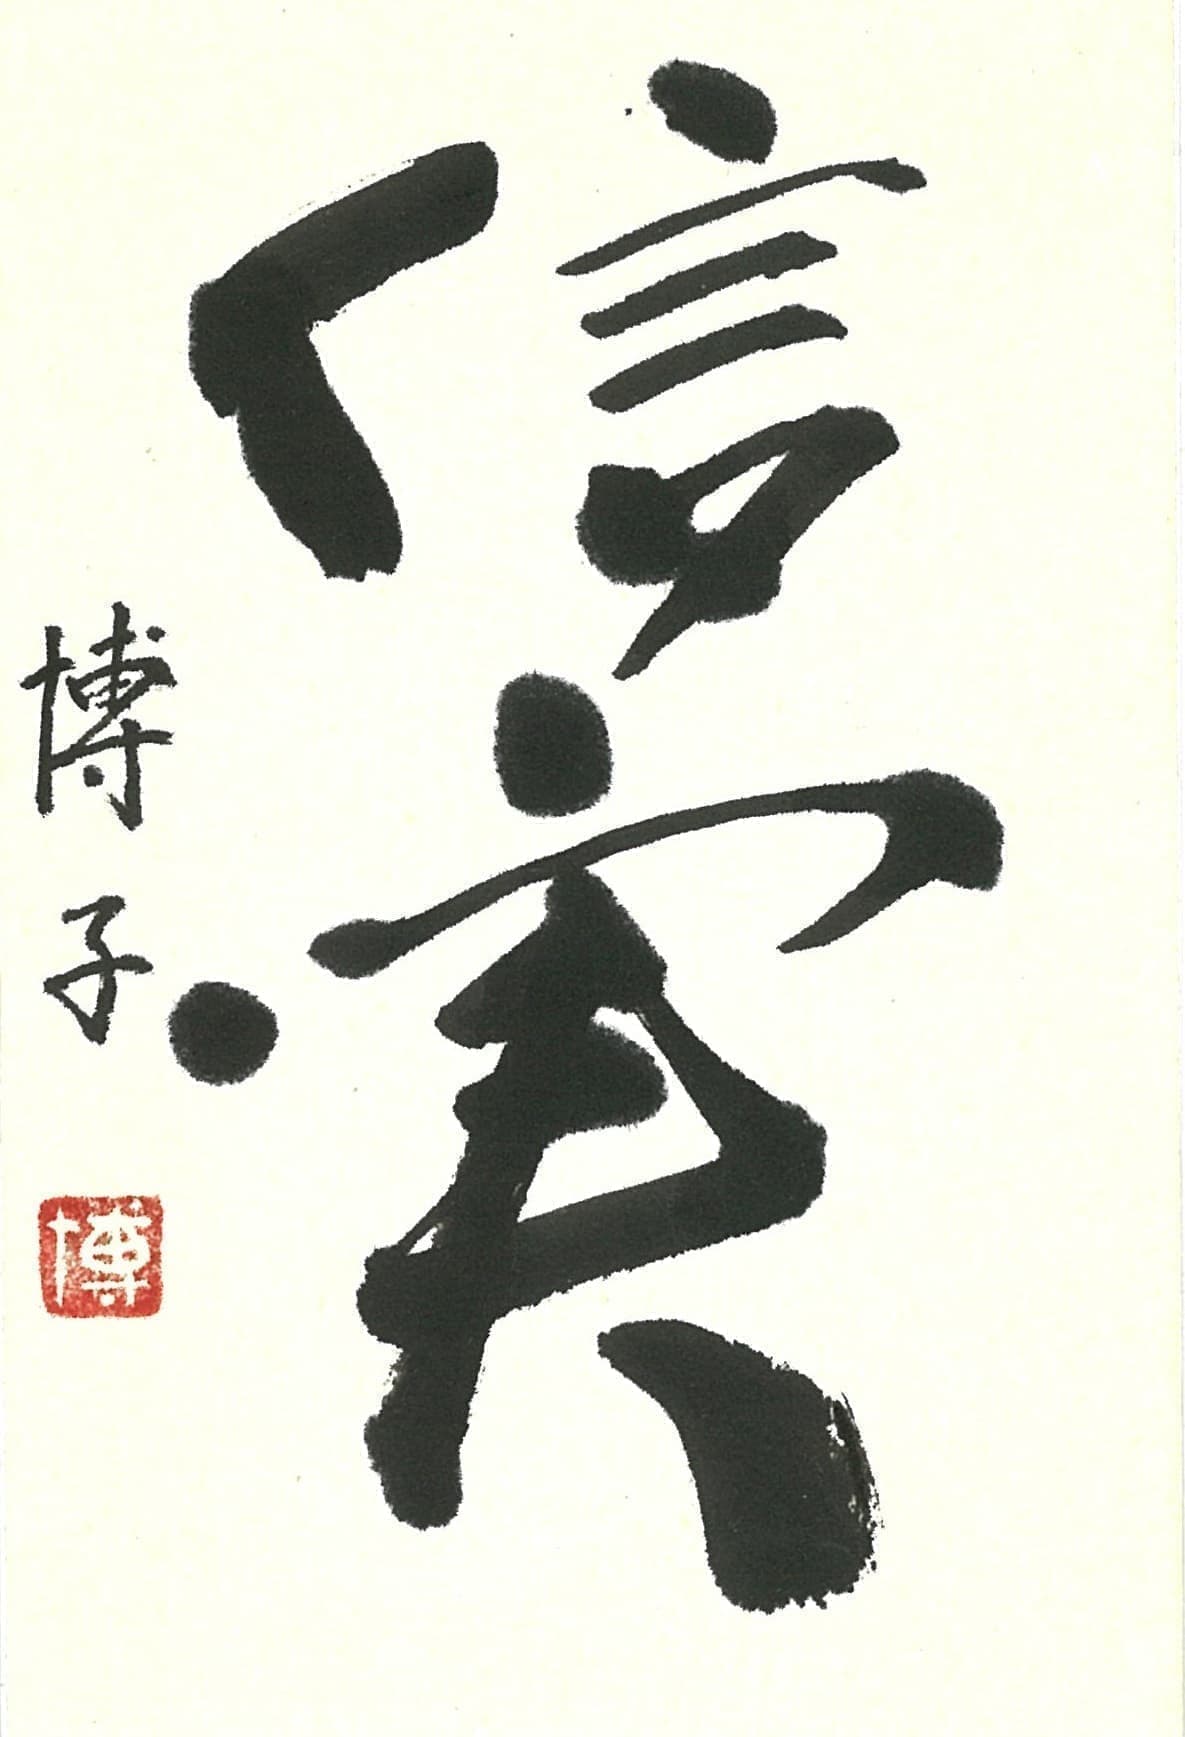 信實
博子
博